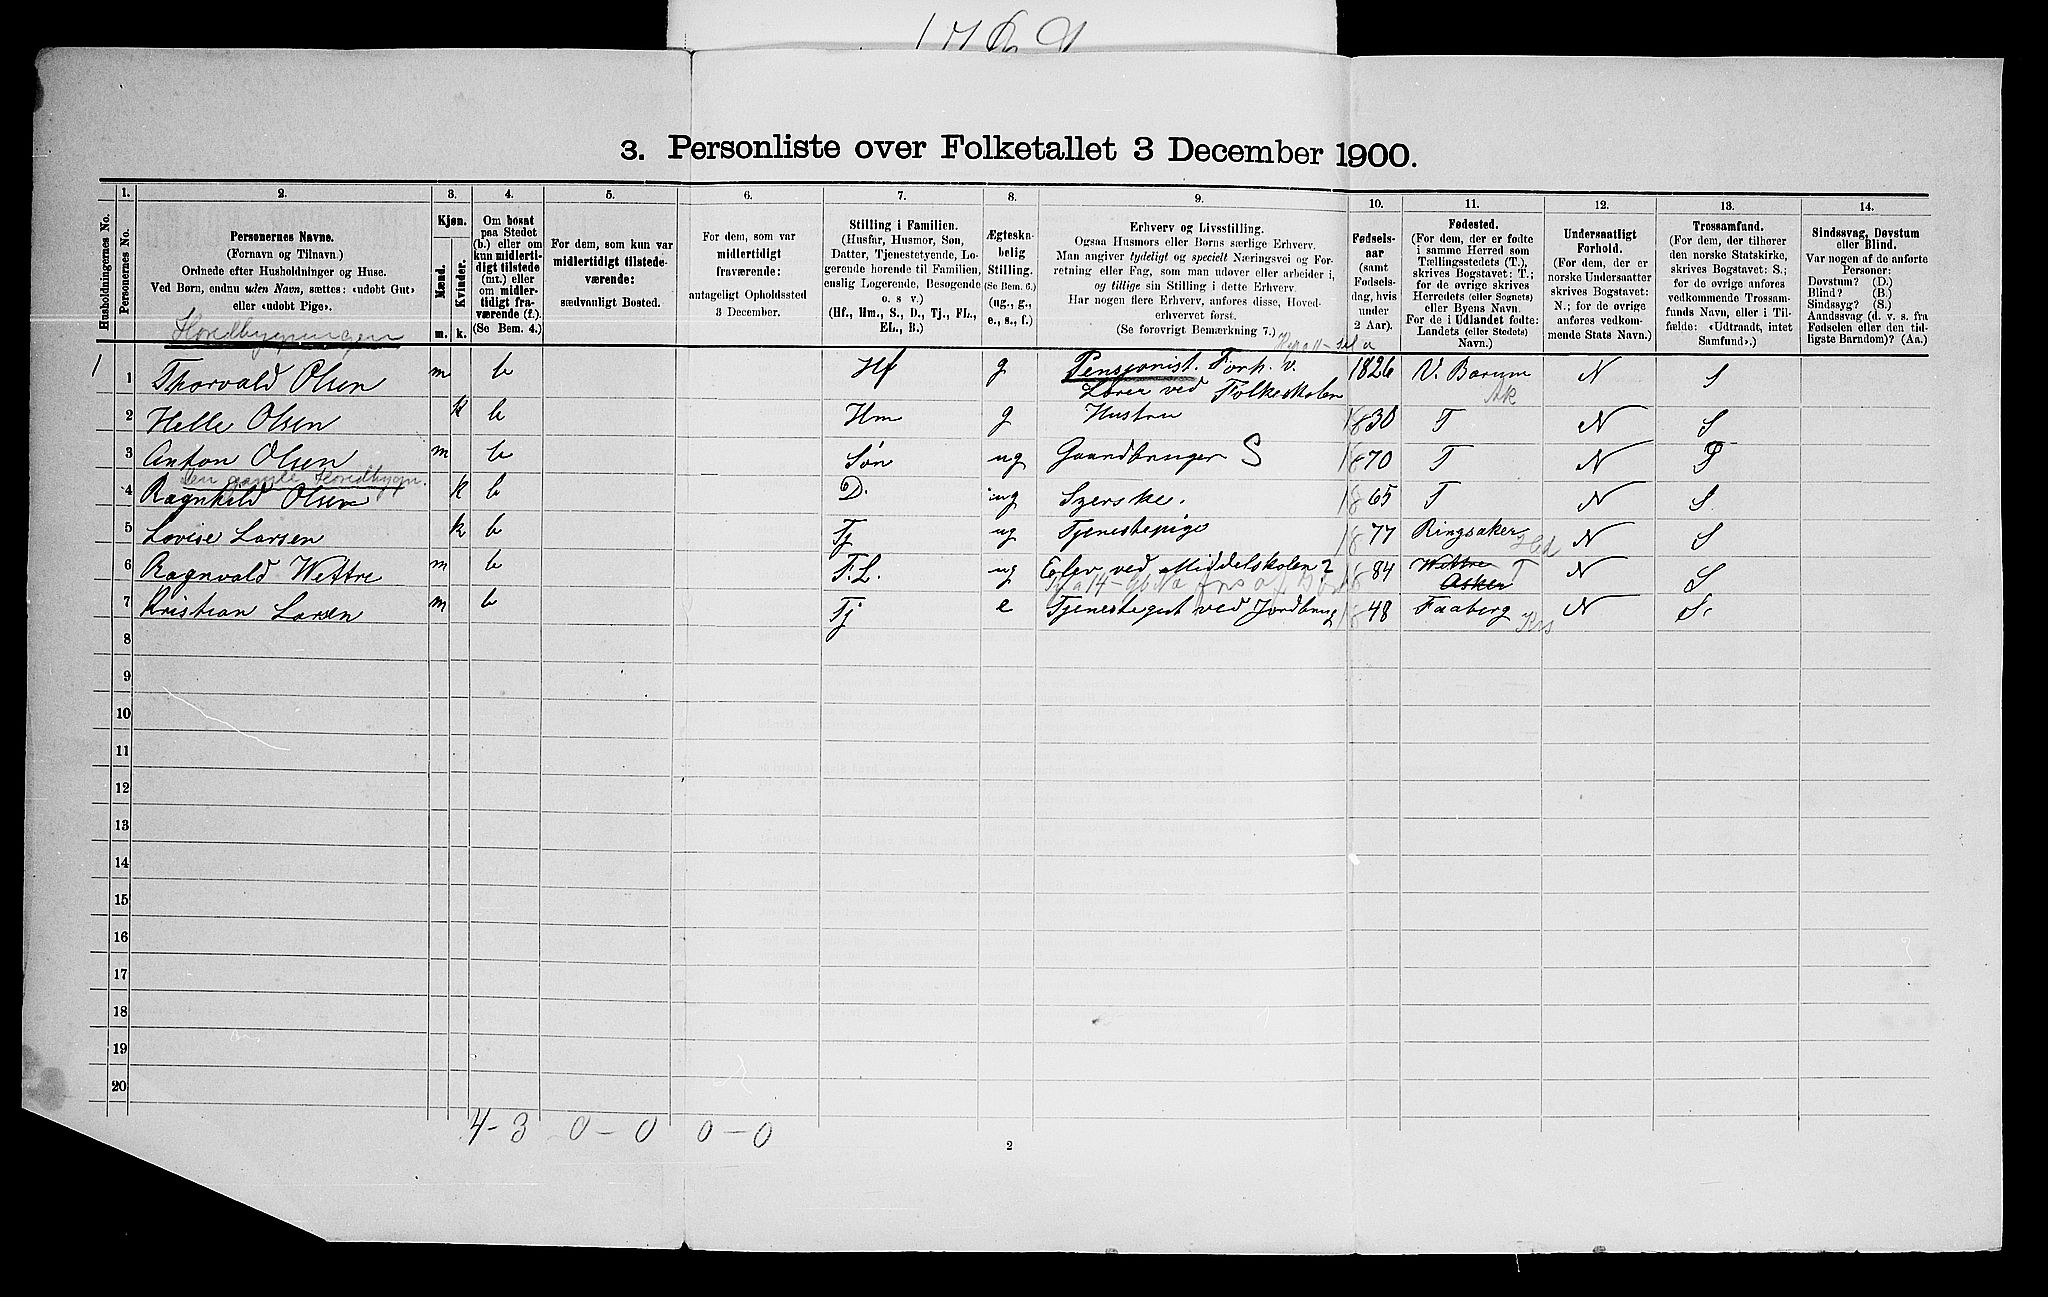 3. Personliste over Folketallet 3 December 1900.
1. 2. 3. 4. 5. 6. 7. 8. 9. 10. 11. 12. 13. 14.
Husholdningernes No.
Personernes No.
Personernes Navne.
(Fornavn og Tilnavn.)
Ordnede efter Husholdninger og Huse.
Ved Børn, endnu uden Navn, sættes: «udøbt Gut»
eller «udøbt Pige».
Hovedbygningen
Kjøn.
Mænd. Kvinder.
m. k.
Om bosat
paa Stedet
(b.) eller om
kun midlerti-
digt tilstede
(mt.) eller
om midler-
tidigt fra-
værende (f.).
(Se Bem. 4.)
For dem, som kun var
midlertidigt tilstede-
værende:
sædvanligt Bosted.
For dem, som var
midlertidigt
fraværende:
antageligt Opholdssted
3 December.
Stilling i Familien.
(Husfar, Husmor, Søn,
Datter, Tjenestetyende, Lo-
gerende hørende til Familien,
enslig Logerende, Besøgende
o. s v.)
(Hf., Hm., S., D., Tj., FL.,
EL., B.)
Ægteska-
belig
Stilling.
(Se Bem. 6.)
(ug., g.,
e., s., f.)
Erhverv og Livsstilling.
Ogsaa Husmors eller Børns særlige Erhverv.
Man angiver tydeligt og specielt Næringsvei og For-
retning eller Fag, som man udøver eller arbeider i,
og tillige sin Stilling i dette Erhverv.
Har nogen flere Erhverv, anføres disse, Hoved-
erhvervet først.
(Se forøvrigt Bemærkning 7.)
Fødsels-
aar
(samt
Fødsels-
dag, hvis
under
2 Aar).
Fødested.
(For dem, der er fødte
i samme Herred som
Tællingsstedets (T.),
skrives Bogstavet: T.;
for de øvrige skrives
Herredets (eller Sognets)
eller Byens Navn.
For de i Udlandet fødte:
Landets (eller Stedets)
Navn.)
Undersaatligt
Forhold.
(For dem, der er
norske Undersaatter
skrives Bogstavet:
N.; for de øvrige
anføres vedkom-
mende Stats Navn.)
Trossamfund.
(For dem, der tilhører
den norske Statskirke,
skrives Bogstavet: S.;
for de øvrige anføres
vedkommende Trossam-
funds Navn, eller i Til-
fælde: «Udtraadt, intet
Samfund».)
Sindssvag, Døvstum
eller Blind.
Var nogen af de anførte
Personer:
Døvstum? (D.)
Blind? (B.)
Sindssyg? (S.)
Aandssvag (d. v. s. fra
Fødselen eller den tid-
ligste Barndom)? (Aa.)
1 1 Thorvald Olsen m b Hf g Pensionist. Forh. v. 1826 V. Bærum N S
Lærer ved Folkeskolen Ak
2 Helle Olsen k b Hm g Hustru 1830 T N S
3 Anton Olsen m b Søn ug Gaardbruger S 1870 T N S
Den gamle Hovedbygn.
4 Ragnhild Olsen k b D. ug Syerske. 1865 T N S.
5 Lovise Larsen k b Tj ug Tjenestepige 1877 Ringsaker Hed N S
6 Ragnvald Wettre m b F.L. ug Elev ved Middelskolen 2 1884 Wettre T N S
Asker
7 Kristian Larsen m b Tj e Tjenestegut ved Jordbrug 1848 Faaberg Kris N S.
8
9
10
11
12
13
14
15
16
17
18
19
20
4-3 0-0 0-0
2